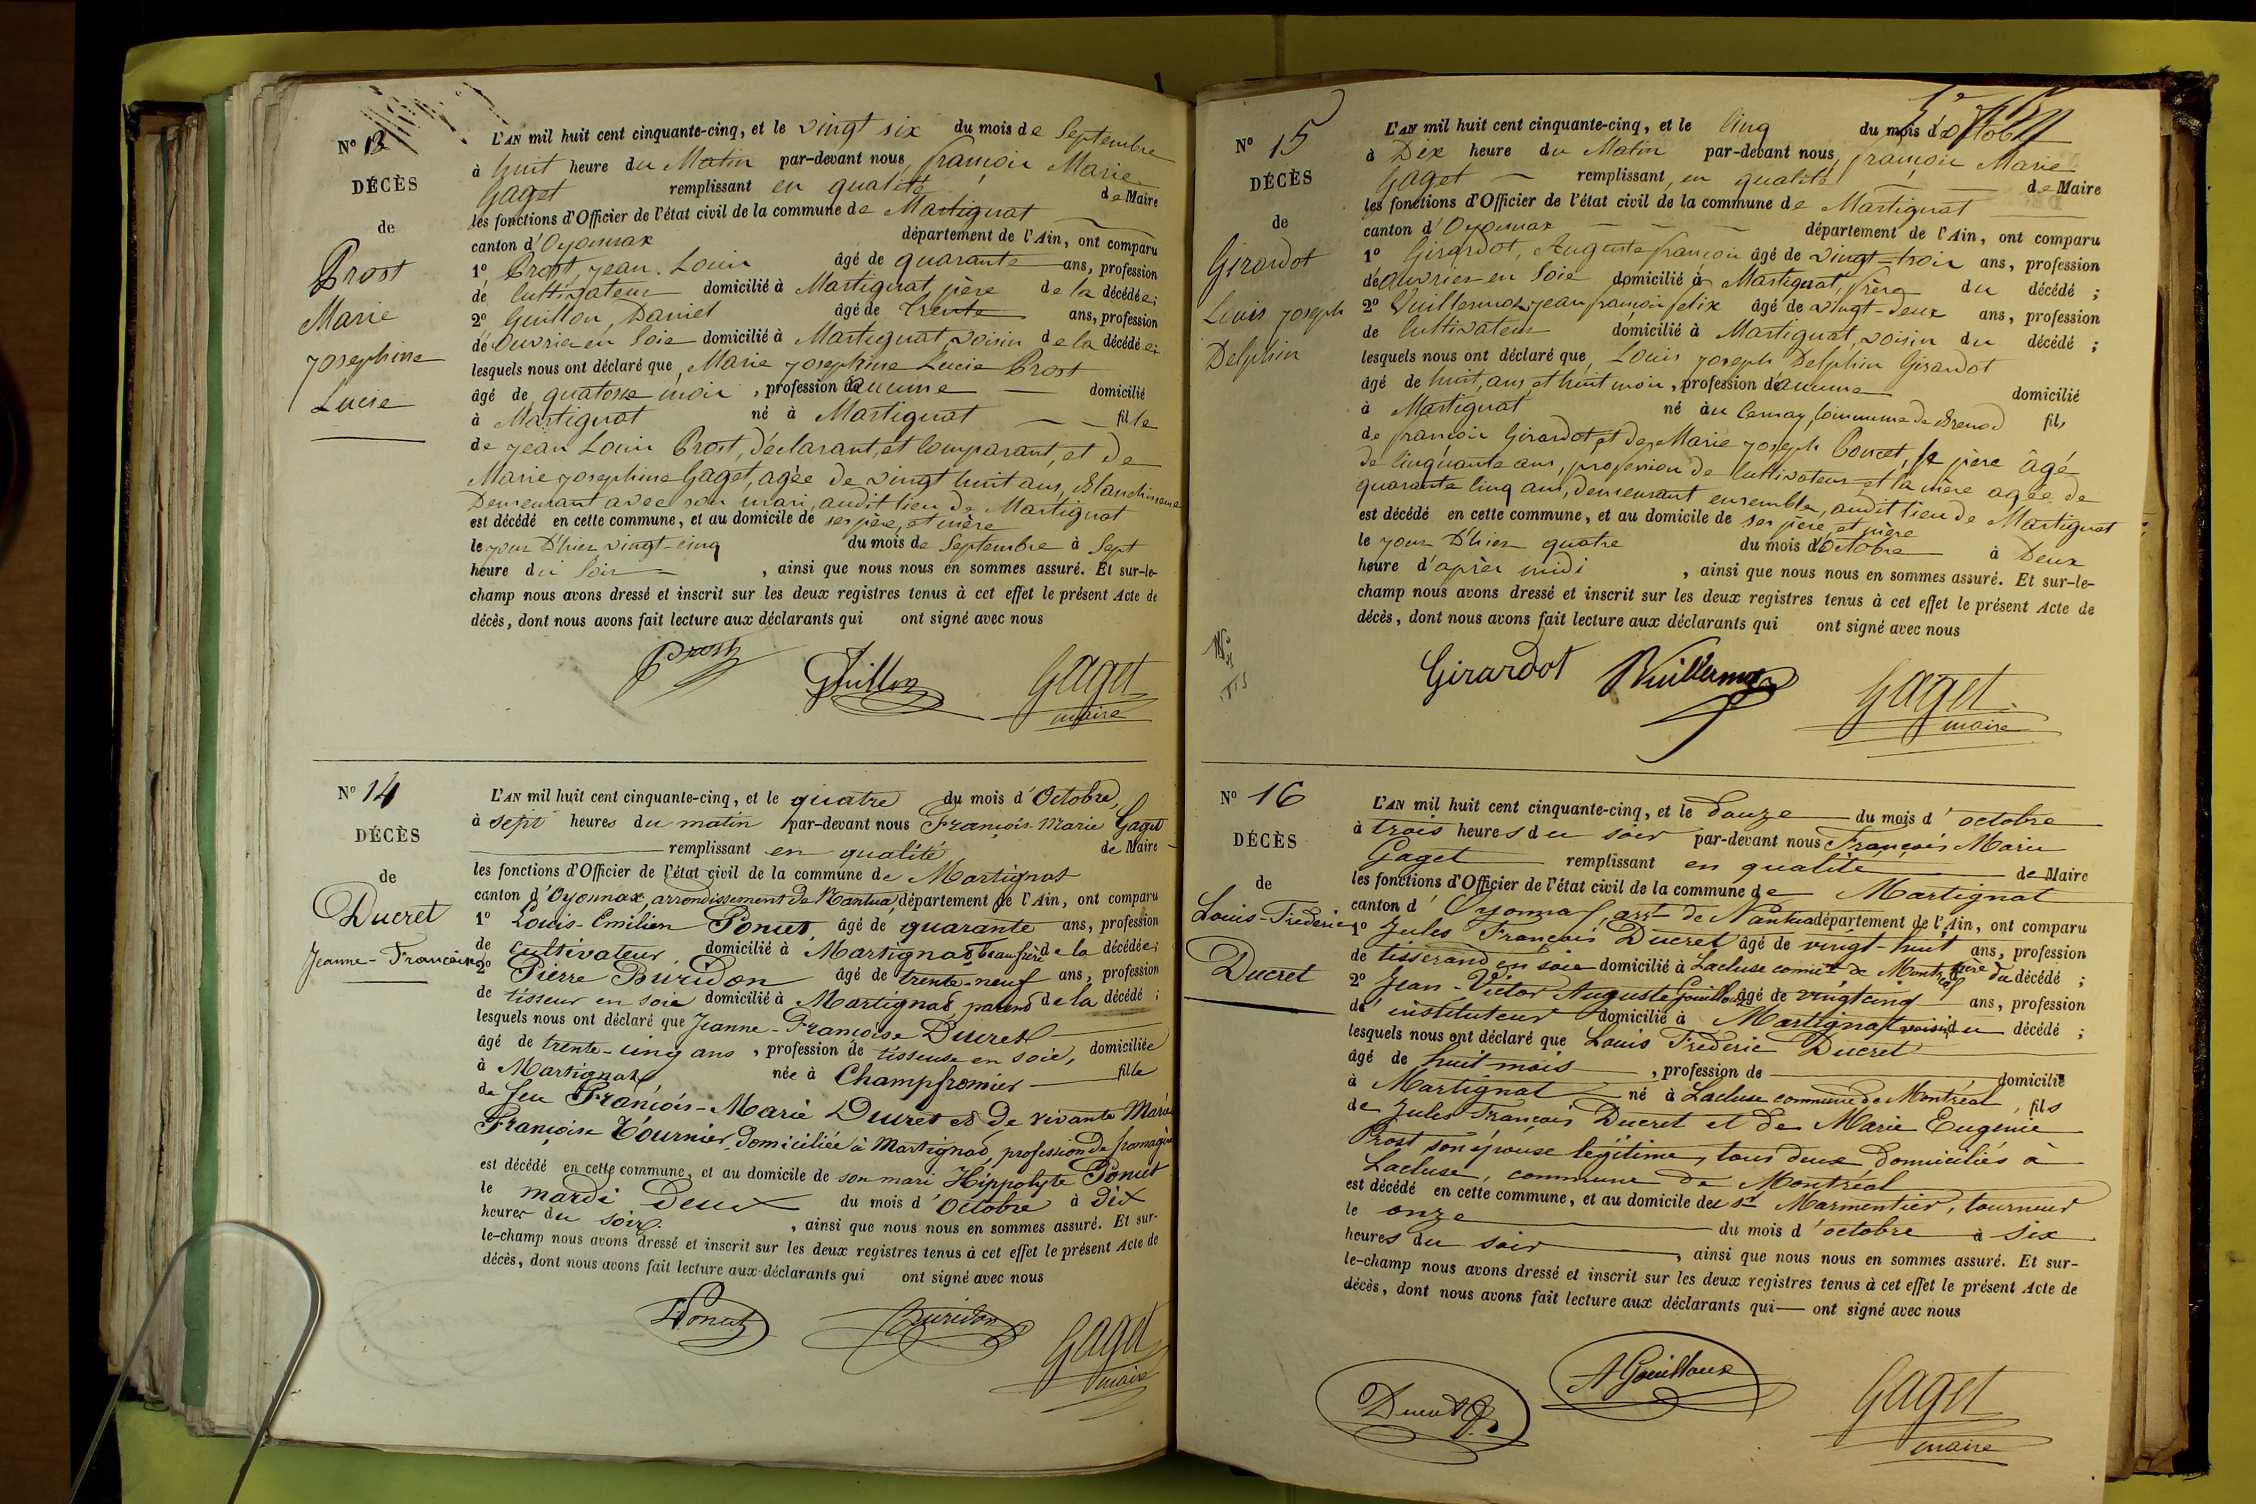 N° 13
DÉCÈS
de
Prost
Marie
Josephine
Lucie
L'AN mil huit cent cinquante-cinq, et le vingt six du mois de Septembre
à huit heure du Matin par-devant nous, françois Marie
Gaget remplissant en qualité de Maire
les fonctions d'Officier de l'état civil de la commune de Martignat
canton d'Oyonnax département de l'Ain, ont comparu
1° Prost, jean Louis âgé de quarante ans, profession
de Cultivateur domicilié à Martignat, père de la décédée;
2° Guillon, Daniel âgé de trente ans, profession
de Ouvrier en Soie domicilié à Martignat, voisin de la décédée;
lesquels nous ont déclaré que, Marie josephine Lucie Prost
âgé de quatorze mois, profession d'aucune domicilié
à Martignat né à Martignat fille
de jean Louis Prost, déclarant, et Comparant, et de
Marie josephine Gaget, agée de vingt huit ans, Blanchisseuse
Demeurant avec son mari, audit lieu de Martignat
est décédé en cette commune, et au domicile de ses père, et mère
le jour D'hier vingt-cinq du mois de Septembre à Sept
heure du Soir, ainsi que nous nous en sommes assuré. Et sur-le-
champ nous avons dressé et inscrit sur les deux registres tenus à cet effet le présent Acte de
décès, dont nous avons fait lecture aux déclarants qui ont signé avec nous
Prost Guillon Gaget
maire
N° 14
DÉCÈS
de
Ducret
Jeanne-Françoise
L'AN mil huit cent cinquante-cinq, et le quatre du mois d'Octobre,
à sept heures du matin par-devant nous François-Marie Gaget
remplissant en qualité de Maire
les fonctions d'Officier de l'état civil de la commune de Martignat
canton d'Oyonnax, arrondissement de Nantua, département de l'Ain, ont comparu
1° Louis-Emilien Poncet âgé de quarante ans, profession
de cultivateur domicilié à Martignat, beau frère de la décédée;
2° Pierre Buridon âgé de trente-neuf ans, profession
de tisseur en soie domicilié à Martignat, parent de la décédé;
lesquels nous ont déclaré que Jeanne-Françoise Ducret
âgé de trente-cinq ans, profession de tisseuse en soie, domiciliée
à Martignat née à Champfromier fille
de feu François-Marie Ducret et de vivante Marie
Françoise Tournier, domiciliée à Martignat, profession de fromagère
est décédé en cette commune, et au domicile de son mari Hippolyte Poncet
le mardi Deux du mois d'Octobre à dix
heures du soir, ainsi que nous nous en sommes assuré. Et sur-
le-champ nous avons dressé et inscrit sur les deux registres tenus à cet effet le présent Acte de
décès, dont nous avons fait lecture aux déclarants qui ont signé avec nous
Poncet Buridon Gaget
maire
N° 15
DÉCÈS
de
Girardot
Louis joseph
Delphin
L'AN mil huit cent cinquante-cinq, et le Cinq du mois d'octobre
à Dix heure du Matin par-devant nous, françois Marie
Gaget remplissant, en qualité de Maire
les fonctions d'Officier de l'état civil de la commune de Martignat
canton d'Oyonnax département de l'Ain, ont comparu
1° Girardot, Auguste françois âgé de vingt-trois ans, profession
de ouvrier en Soie domicilié à Martignat, frère du décédé;
2° Vuillermoz, jean françois felix âgé de vingt-deux ans, profession
de Cultivateur domicilié à Martignat, voisin du décédé;
lesquels nous ont déclaré que, Louis joseph Delphin Girardot
âgé de huit, ans, et huit mois, profession d'aucune domicilié
à Martignat né au Cernay, Commune de Brenod fils
de françois Girardot, et de Marie joseph Poncet, le père âgé
de Cinquante ans, profession de Cultivateur et la mère agée de
quarante Cinq ans, demeurant ensemble, audit lieu de Martignat
est décédé en cette commune, et au domicile de ses père et mère
le jour D'hier quatre du mois d'Octobre à Deux
heure d'après midi, ainsi que nous nous en sommes assuré. Et sur-le-
champ nous avons dressé et inscrit sur les deux registres tenus à cet effet le présent Acte de
décès, dont nous avons fait lecture aux déclarants qui ont signé avec nous
Girardot Vuillermoz Gaget
maire
N° 16
DÉCÈS
de
Louis-Fréderic
Ducret
L'AN mil huit cent cinquante-cinq, et le douze du mois d'octobre
à trois heures du soir par-devant nous François Marie
Gaget remplissant en qualité de Maire
les fonctions d'Officier de l'état civil de la commune de Martignat
canton d'Oyonnax, arrt de Nantua département de l'Ain, ont comparu
1° Jules François Ducret âgé de vingt-huit ans, profession
de tisserand en soie domicilié à Lacluse comne de Montréal père du décédé;
2° Jean-Victor Auguste Gouilloux âgé de vingt cinq ans, profession
de instituteur domicilié à Martignat, voisin du décédé;
lesquels nous ont déclaré que Louis Fréderic Ducret
âgé de huit mois, profession de domicilié
à Martignat né à Lacluse commune de Montréal, fils
de Jules François Ducret et de Marie Eugénie
Prost son épouse légitime, tous deux domiciliés à
Lacluse, commune de Montréal
est décédé en cette commune, et au domicile de sr Marmentier, tourneur
le onze du mois d'octobre à six
heures du soir, ainsi que nous nous en sommes assuré. Et sur-
le-champ nous avons dressé et inscrit sur les deux registres tenus à cet effet le présent Acte de
décès, dont nous avons fait lecture aux déclarants qui ont signé avec nous
Ducret A Gouilloux Gaget
maire